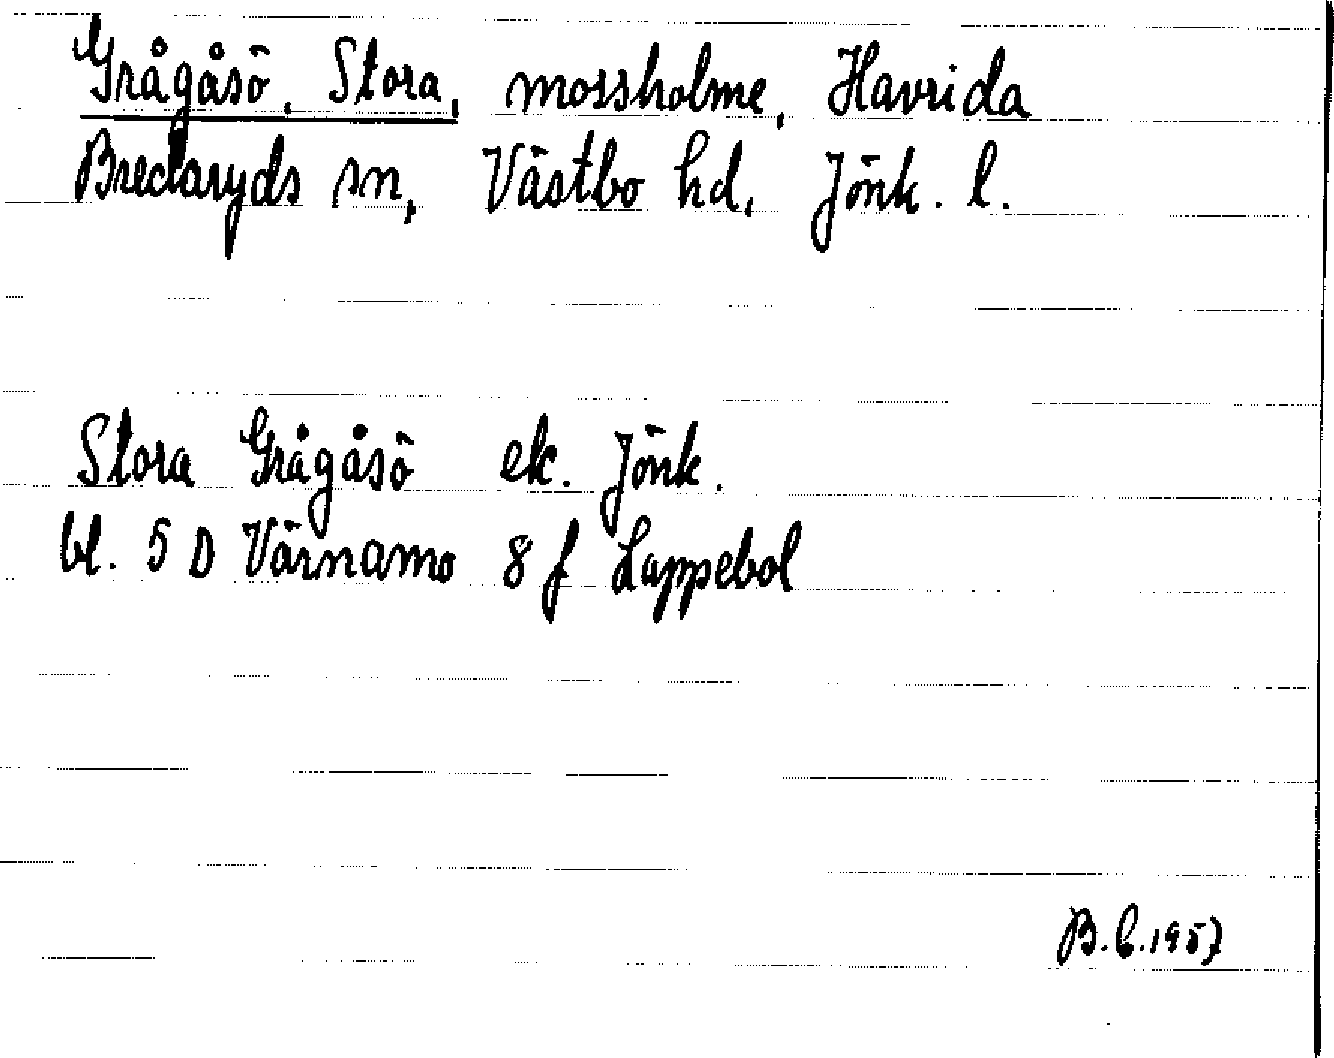 Grågåsö, Stora, mossholme, Havrida
Bredaryds sn, Västbo hd, Jönk. l.
Stora Grågåsö ek. Jönk.
bl. 5 D Värnamo 8 f Lappebol
B.C.1957